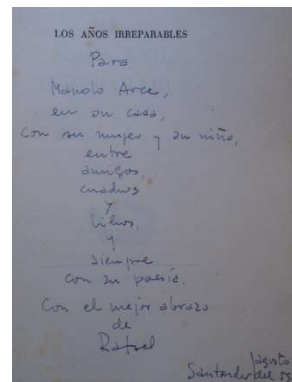 LOS AÑOS IRREPARABLES
Para
Manolo Arce,
en su casa,
con su mujer y su niño,
entre
amigos,
cuadros
y
libros,
y
siempre
con su poesía.
Con el mejor abrazo
de
Rafael
agosto
Santander del 55